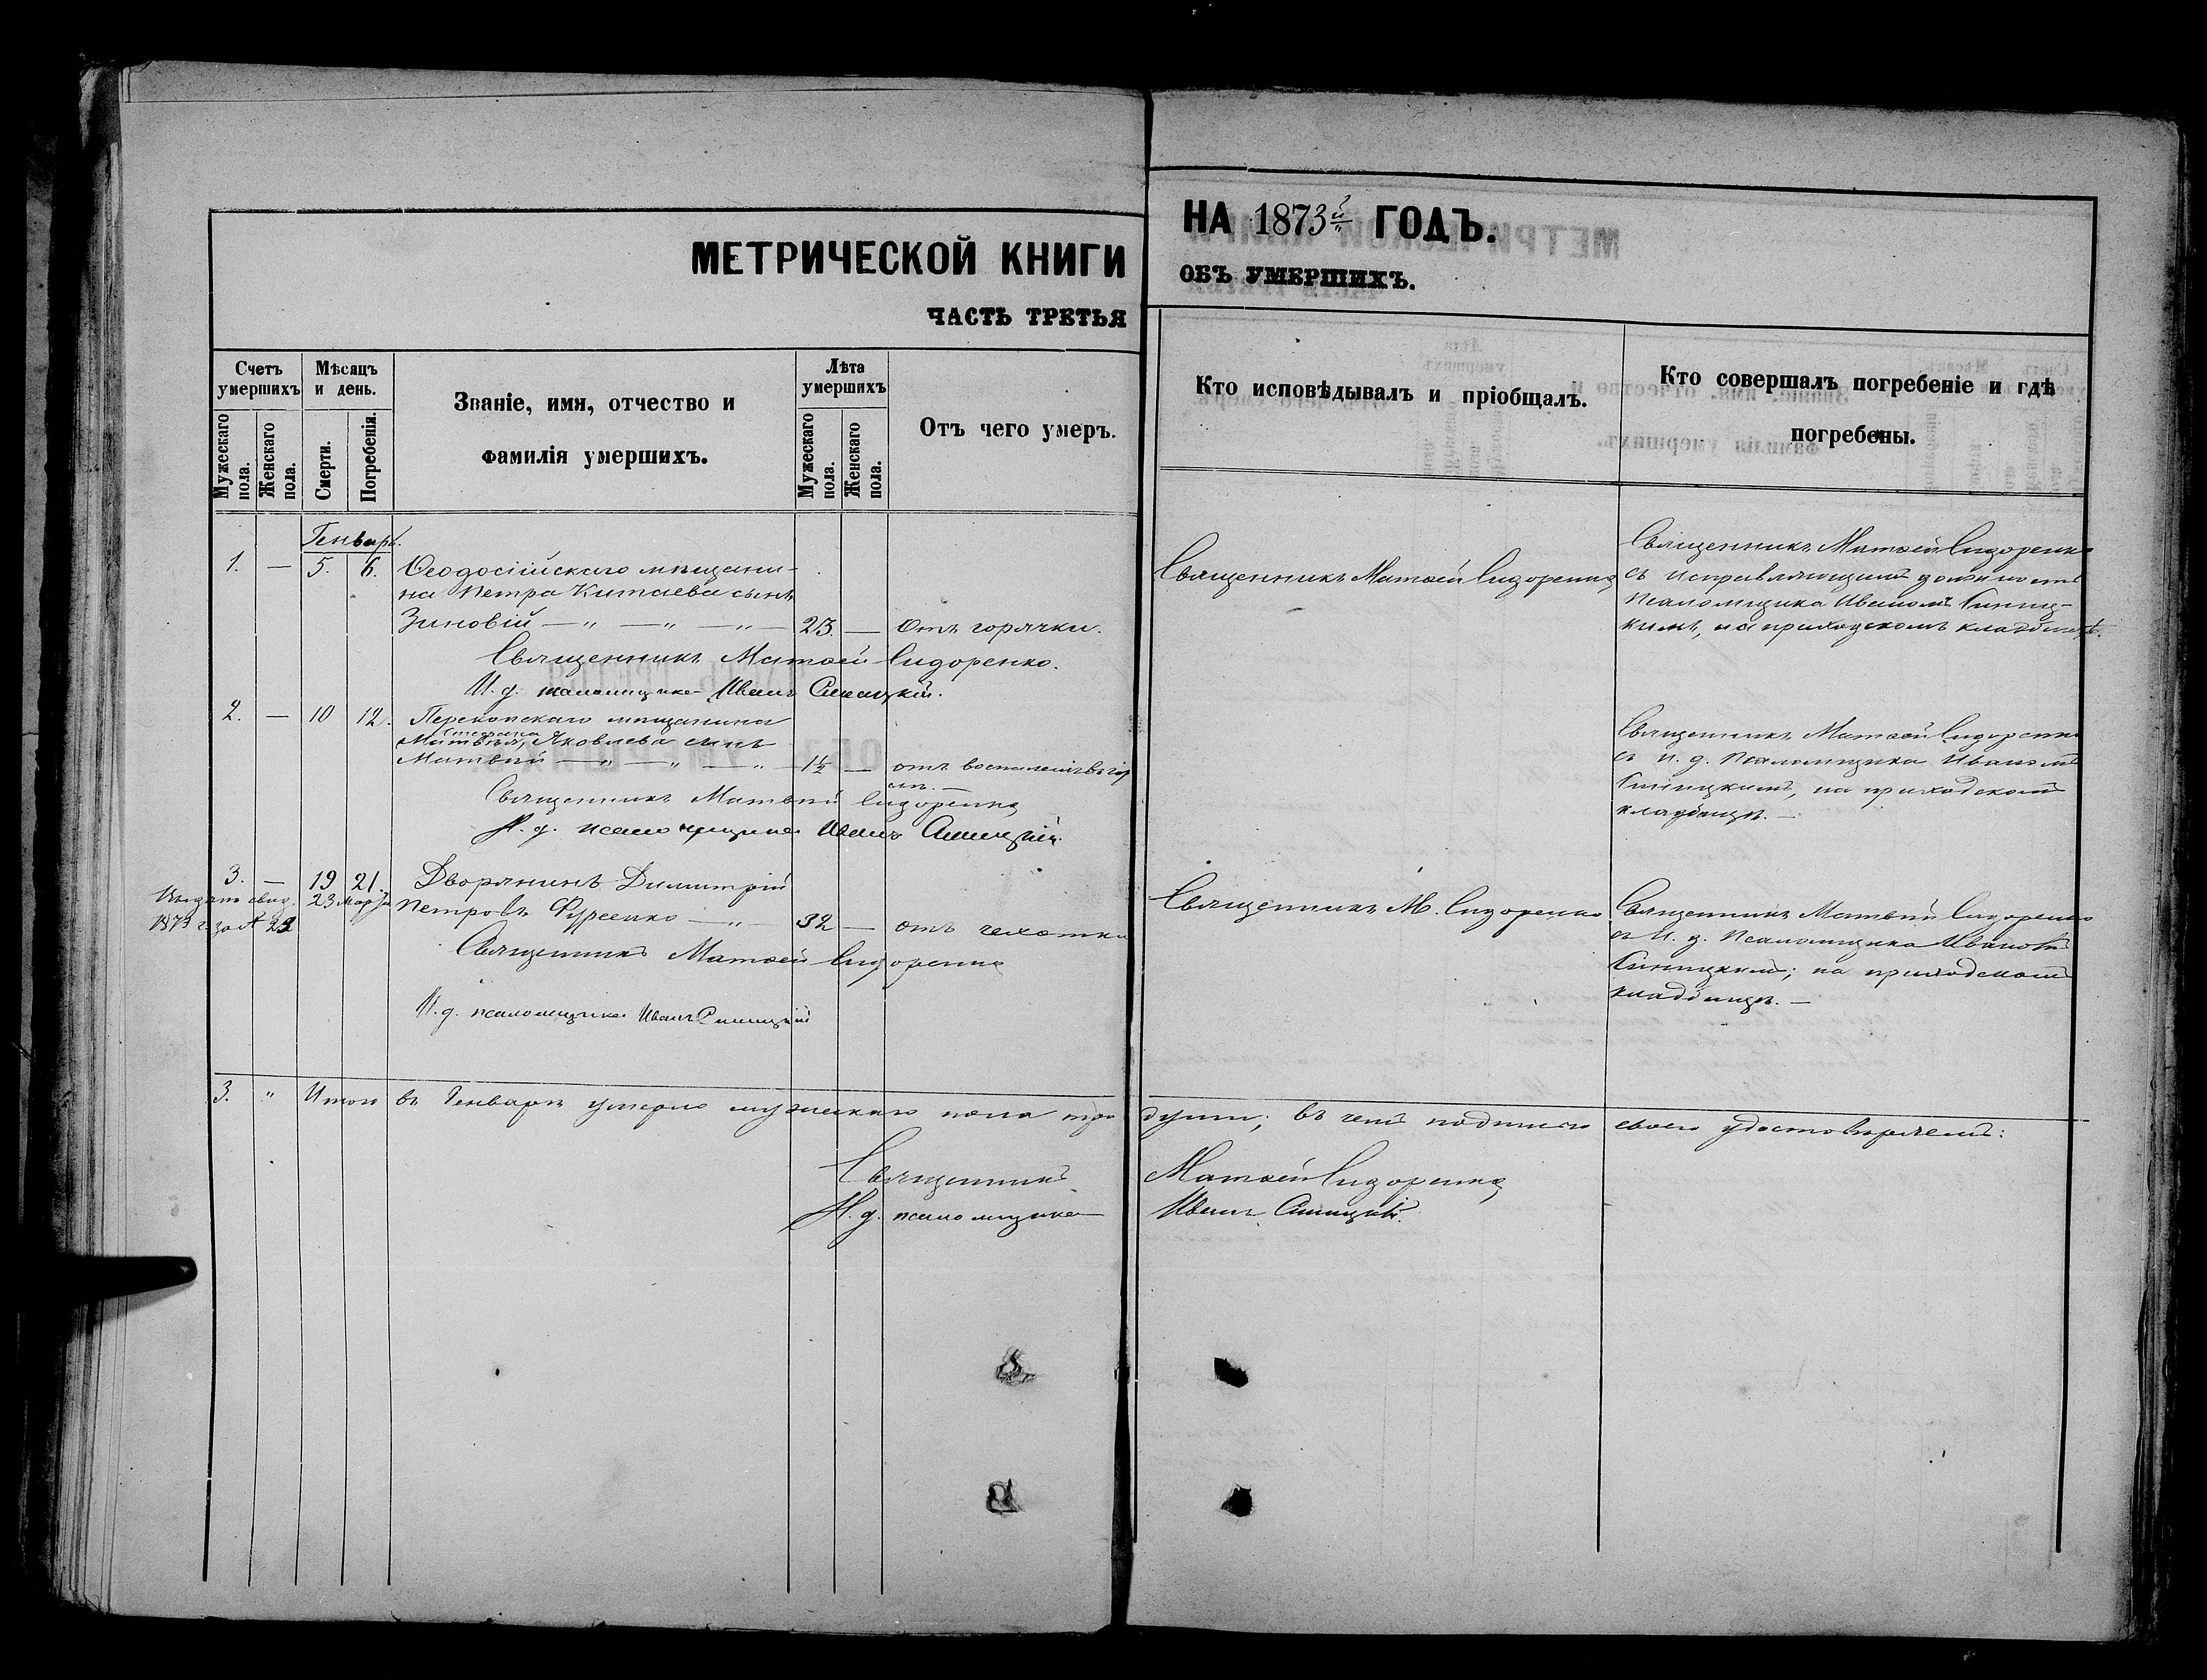 МЕТРИЧЕСКОЙ КНИГИ
ЧАСТЬ ТРЕТЬЯ
НА 1873й ГОДЪ.
ОБЪ УМЕРШИХЪ.
Счетъ умершихъ
Мужескаго пола.
Женскаго пола.
Мѣсяцъ и день.
Смерти.
Погребенія.
Званіе, имя, отчество и
фамилія умершихъ.
Лѣта умершихъ
Мужескаго пола.
Женскаго пола.
Отъ чего умеръ.
Кто исповѣдывалъ и пріобщалъ.
Кто совершалъ погребеніе и гдѣ
погребены.
Генварь.
1. — 5. 6. Ѳеодосійскаго мѣщани-
на Петра Китаева сынъ
Зиновій — „ — „ — „ — 23. — Отъ горячки.
Священникъ Матѳей Сидоренко
Священникъ Матѳей Сидоренко
съ исправляющимъ должность
псаломщика Иваномъ Синиц-
кимъ, на приходскомъ кладбищѣ.
Священникъ Матѳей Сидоренко.
И. д. псаломщика Иванъ Синицкій.
2. — 10 12. Перекопскаго мѣщанина
Яковлева сынъ
Матвѣй — „ — „ — „ — 1½ — отъ воспаленія въ
Священникъ Матѳей Сидоренко
съ И. д. Псаломщика Иваномъ
Синицкимъ, на приходскомъ
кладбищѣ. —
Священникъ Матвей Сидоренко
И. д. псаломщика Иванъ Синицкій.
3. — 19 21. Дворянинъ Димитрій
Петровъ Фурсенко — „ — 32 — отъ чахотки
Выдано свид. 23 марта
1873 г. за № 22
Священникъ М. Сидоренко
Священникъ Матвей Сидоренко
съ И. д. Псаломщика Иваномъ
Синицкимъ; на приходскомъ
кладбищѣ. —
Священникъ Матѳей Сидоренко
И. д. псаломщика Иванъ Синицкій
3. „ Итого въ Генварѣ умерло мужескаго пола три души; въ чемъ подписью своею удостовѣряемъ:
Священникъ Матѳей Сидоренко
И. д. псаломщика Иванъ Синицкій.